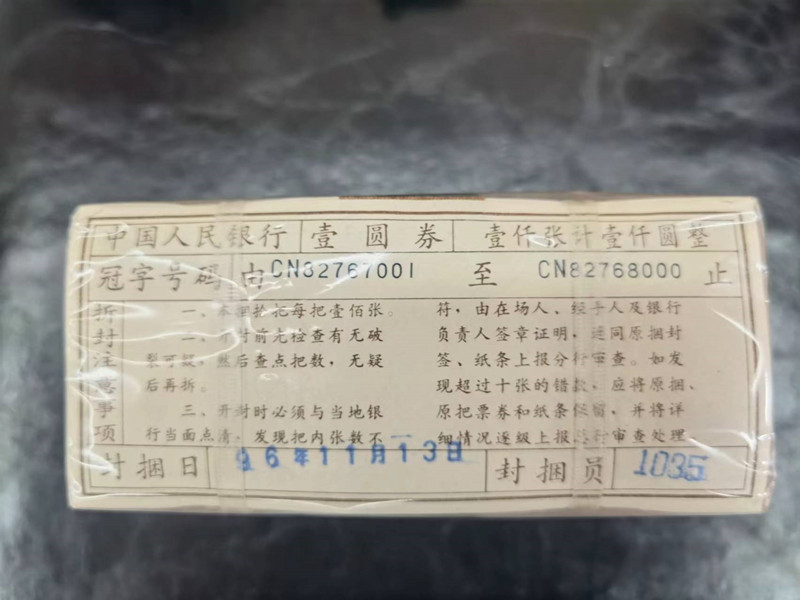 中国人民银行 壹圆券 壹仟张计壹仟圆整
冠字号码 由CN82767001 至 CN82768000 止
拆封注意事项
一、本捆扎把每把壹佰张。
二、开封前先检查有无破
裂可疑，然后查点把数，无疑
后再拆。
三、开封时必须与当地银
行当面点清，发现把内张数不
符，由在场人、经手人及银行
负责人签章证明，连同原捆封
签、纸条上报分行审查。如发
现超过十张的错款，应将原捆、
原把票券和纸条保留，并将详
细情况逐级上报总行审查处理
封捆日 96年11月13日 封捆员 1035